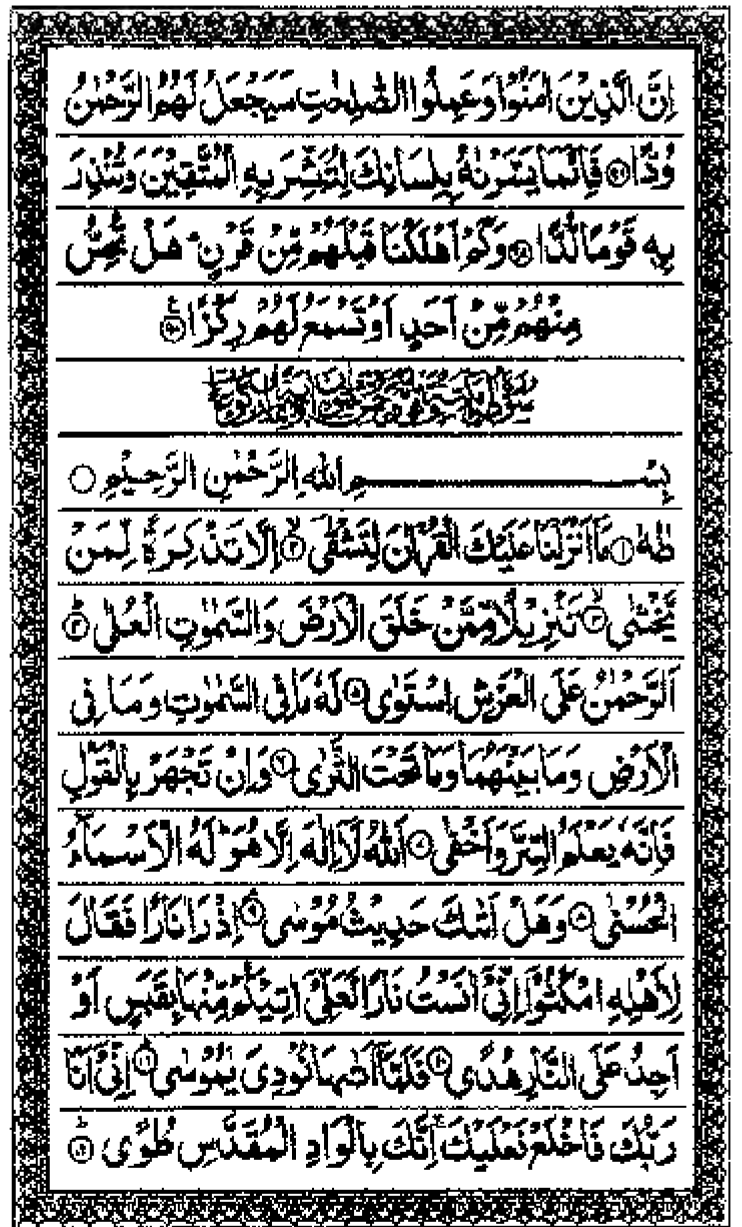 اِنَّ الَّذِيْنَ اٰمَنُوْا وَعَمِلُوا الصّٰلِحٰتِ سَيَجْعَلُ لَهُمُ الرَّحْمٰنُ
وُدًّا ﴿۹۶﴾ فَاِنَّمَا يَسَّرْنٰهُ بِلِسَانِكَ لِتُبَشِّرَ بِهِ الْمُتَّقِيْنَ وَتُنْذِرَ
بِهٖ قَوْمًا لُّدًّا ﴿۹۷﴾ وَكَمْ اَهْلَكْنَا قَبْلَهُمْ مِّنْ قَرْنٍ ؕ هَلْ تُحِسُّ
مِنْهُمْ مِّنْ اَحَدٍ اَوْ تَسْمَعُ لَهُمْ رِكْزًا ﴿۹۸﴾
بِسْمِ اللّٰهِ الرَّحْمٰنِ الرَّحِيْمِ
طٰهٰ ﴿۱﴾ مَاۤ اَنْزَلْنَا عَلَيْكَ الْقُرْاٰنَ لِتَشْقٰۤى ﴿۲﴾ اِلَّا تَذْكِرَةً لِّمَنْ
يَّخْشٰى ﴿۳﴾ تَنْزِيْلًا مِّمَّنْ خَلَقَ الْاَرْضَ وَالسَّمٰوٰتِ الْعُلٰى ﴿۴﴾
اَلرَّحْمٰنُ عَلَى الْعَرْشِ اسْتَوٰى ﴿۵﴾ لَهٗ مَا فِى السَّمٰوٰتِ وَمَا فِى
الْاَرْضِ وَمَا بَيْنَهُمَا وَمَا تَحْتَ الثَّرٰى ﴿۶﴾ وَاِنْ تَجْهَرْ بِالْقَوْلِ
فَاِنَّهٗ يَعْلَمُ السِّرَّ وَاَخْفٰى ﴿۷﴾ اَللّٰهُ لَاۤ اِلٰهَ اِلَّا هُوَ ؕ لَهُ الْاَسْمَآءُ
الْحُسْنٰى ﴿۸﴾ وَهَلْ اَتٰىكَ حَدِيْثُ مُوْسٰى ﴿۹﴾ اِذْ رَاٰ نَارًا فَقَالَ
لِاَهْلِهِ امْكُثُوْۤا اِنِّىْۤ اٰنَسْتُ نَارًا لَّعَلِّىْۤ اٰتِيْكُمْ مِّنْهَا بِقَبَسٍ اَوْ
اَجِدُ عَلَى النَّارِ هُدًى ﴿۱۰﴾ فَلَمَّاۤ اَتٰىهَا نُوْدِىَ يٰمُوْسٰى ﴿۱۱﴾ اِنِّىْۤ اَنَا
رَبُّكَ فَاخْلَعْ نَعْلَيْكَ ۚ اِنَّكَ بِالْوَادِ الْمُقَدَّسِ طُوًى ﴿۱۲﴾